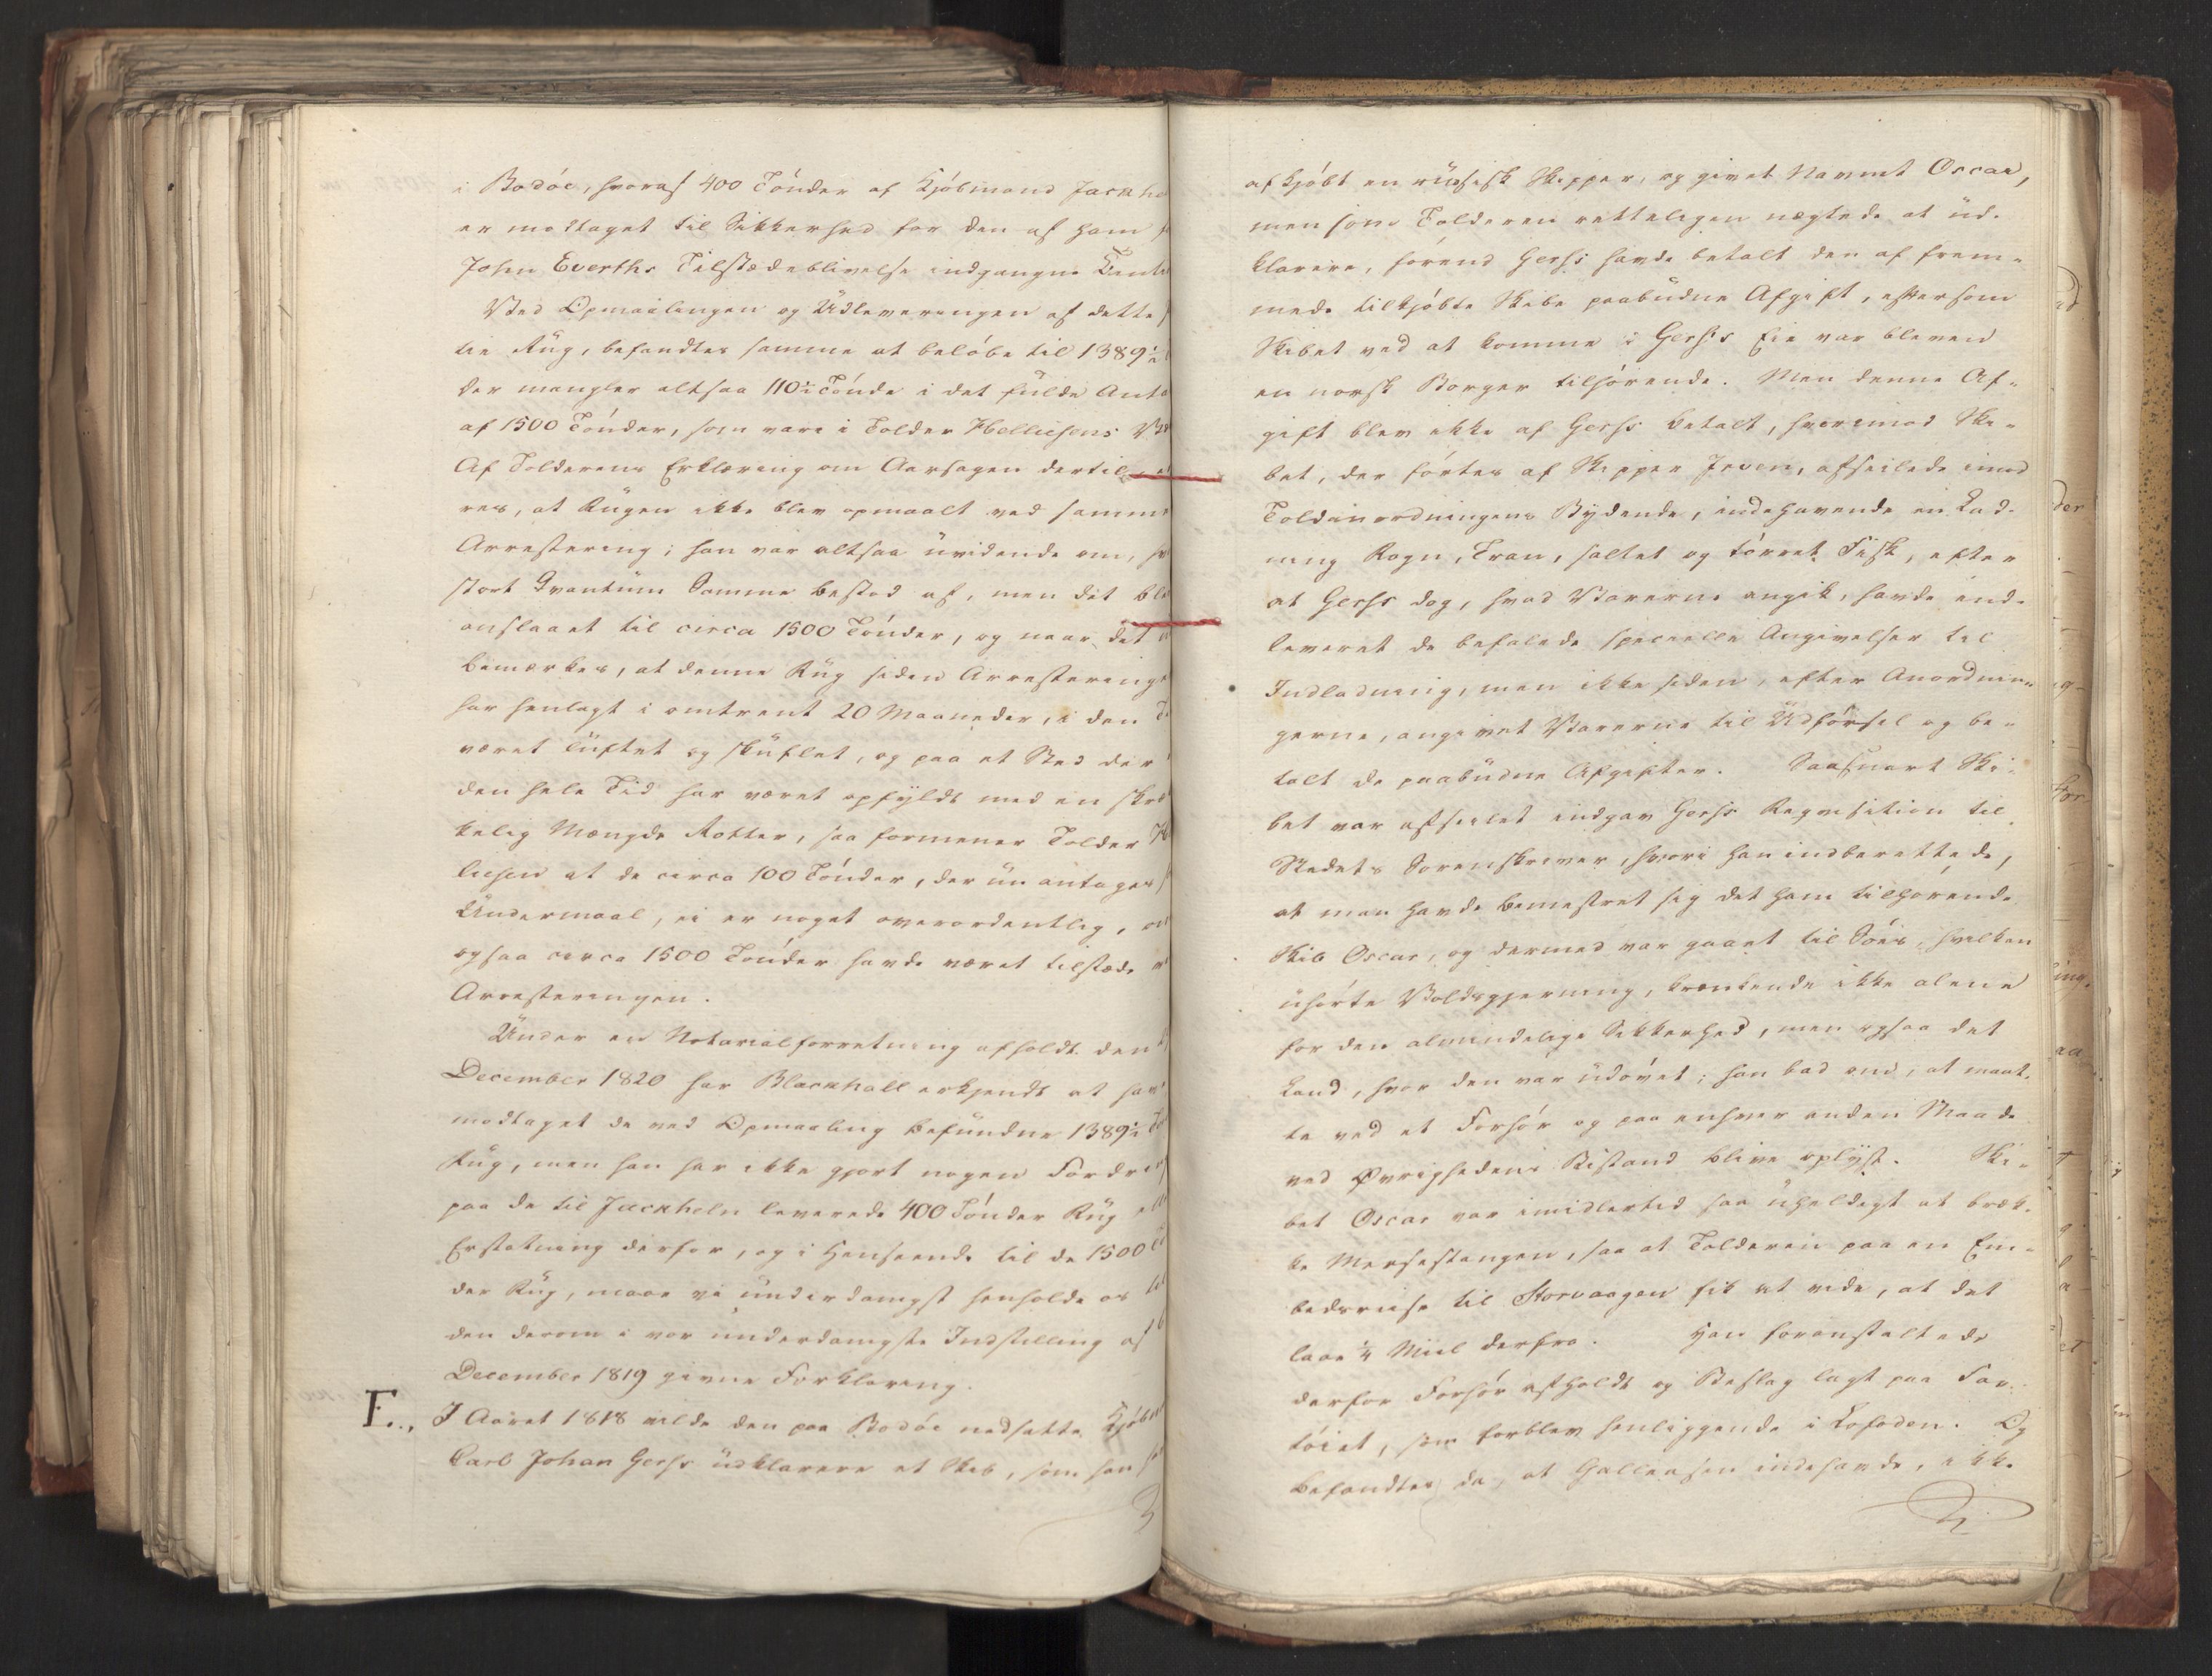 i Bodøe, hvoraf 400 Tønder af Kjøbmand Jackhe
er modtaget til Sikkerhed for den af ham
John Everths Tilstædeblivelse indgangne
Ved Opmaalingen og Udleveringen af dette
tie Rug, befandtes samme at beløbe til 1389½
der mangler altsaa 110½ Tønde i det fulde Anta
af 1500 Tønder, som vare i Tolder Helliesens
Af Tolderens Erklæring om Aarsagen dertil
res, at Rugen ikke blev opmaalt ved samme
Arrestering; han var altsaa uvidende om, hv
stort Qvantum Samme bestod af, men det ble
anslaaet til circa 1500 Tønder, og naar det
bemærkes, at denne Rug siden Arrestering
har henlagt i omtrent 20 Maaneder, i den
været luftet og skuflet, og paa et Sted der
den hele Tid har været opfyldt med en skræ
kelig Mængde Rotter, saa formener Tolder He
liesen at de circa 100 Tønder, der nu antages
Undermaal, ei er noget overordentlig, om
ogsaa circa 1500 Tønder havde været tilstæde
Arresteringen.
Under en Notarialforretning afholdt den
December 1820 har Blackhall erkjendt at hav
modtaget de ved Opmaaling befundne 1389½ Tø
Rug, men han har ikke gjort nogen Fordrin
paa de til Jackheln leverede 400 Tønder Rug ell
Erstatning derfor, og i Henseende til de 1500
der Rug, maae vi underdanigst henholde os til
den derom i vor underdanigste Indstilling af
December 1819 givne Forklaring.
E., I Aaret 1818 vilde den paa Bodøe nedsatte Kjøbm
Carl Johan Gerss udklarere et Skib, som han
afkjøbt en russisk Skipper, og givet Navnet Oscar,
men som Tolderen retteligen nægtede at ud-
klarere, førend Gerss havde betalt den af frem-
mede tilkjøbte Skibe paabudne Afgift, eftersom
Skibet ved at komme i Gerss's Eie var bleven
en norsk Borger tilhørende. Men denne Af-
gift blev ikke af Gerss betalt, hvorimod Ski-
bet, der førtes af Skipper Iven, afseilede imod
Toldanordningens Bydende, indehavende en Lad-
ning Rogn, Tran, saltet og tørret Fisk, efter
at Gerss dog, hvad Varerne angik, havde ind-
leveret de befalede specielle Angivelser til
Indladning, men ikke siden, efter Anordnin-
gerne, angivet Varerne til Udførsel og be-
talt de paabudne Afgifter. Saasnart Ski-
bet var afseilet indgav Gerss Reqvisition til
Stedets Sorenskriver, hvori han indberettede,
at man havde bemestret sig det ham tilhørende
Skib Oscar, og dermed var gaaet til Søes, hvilken
uhørte Voldsgjerning, krænkende ikke alene
for den almindelige Sikkerhed, men ogsaa det
Land, hvor den var udøvet; han bad om, at maat-
te ved et Forhør og paa enhver anden Maade
ved Øvrighedens Bistand blive oplyst. Ski-
bet Oscar var imidlertid saa uheldigt at bræk-
ke Mersestangen, saa at Tolderen paa en Em-
bedsreise til Storvaagen fik at vide, at det
laae ¼ Miil derfra. Han foranstaltede
derfor Forhør afholdt og Beslag lagt paa Far-
tøiet, som forblev henliggende i Lofoden. Og
befandtes da, at Galleasen indehavde, ikke